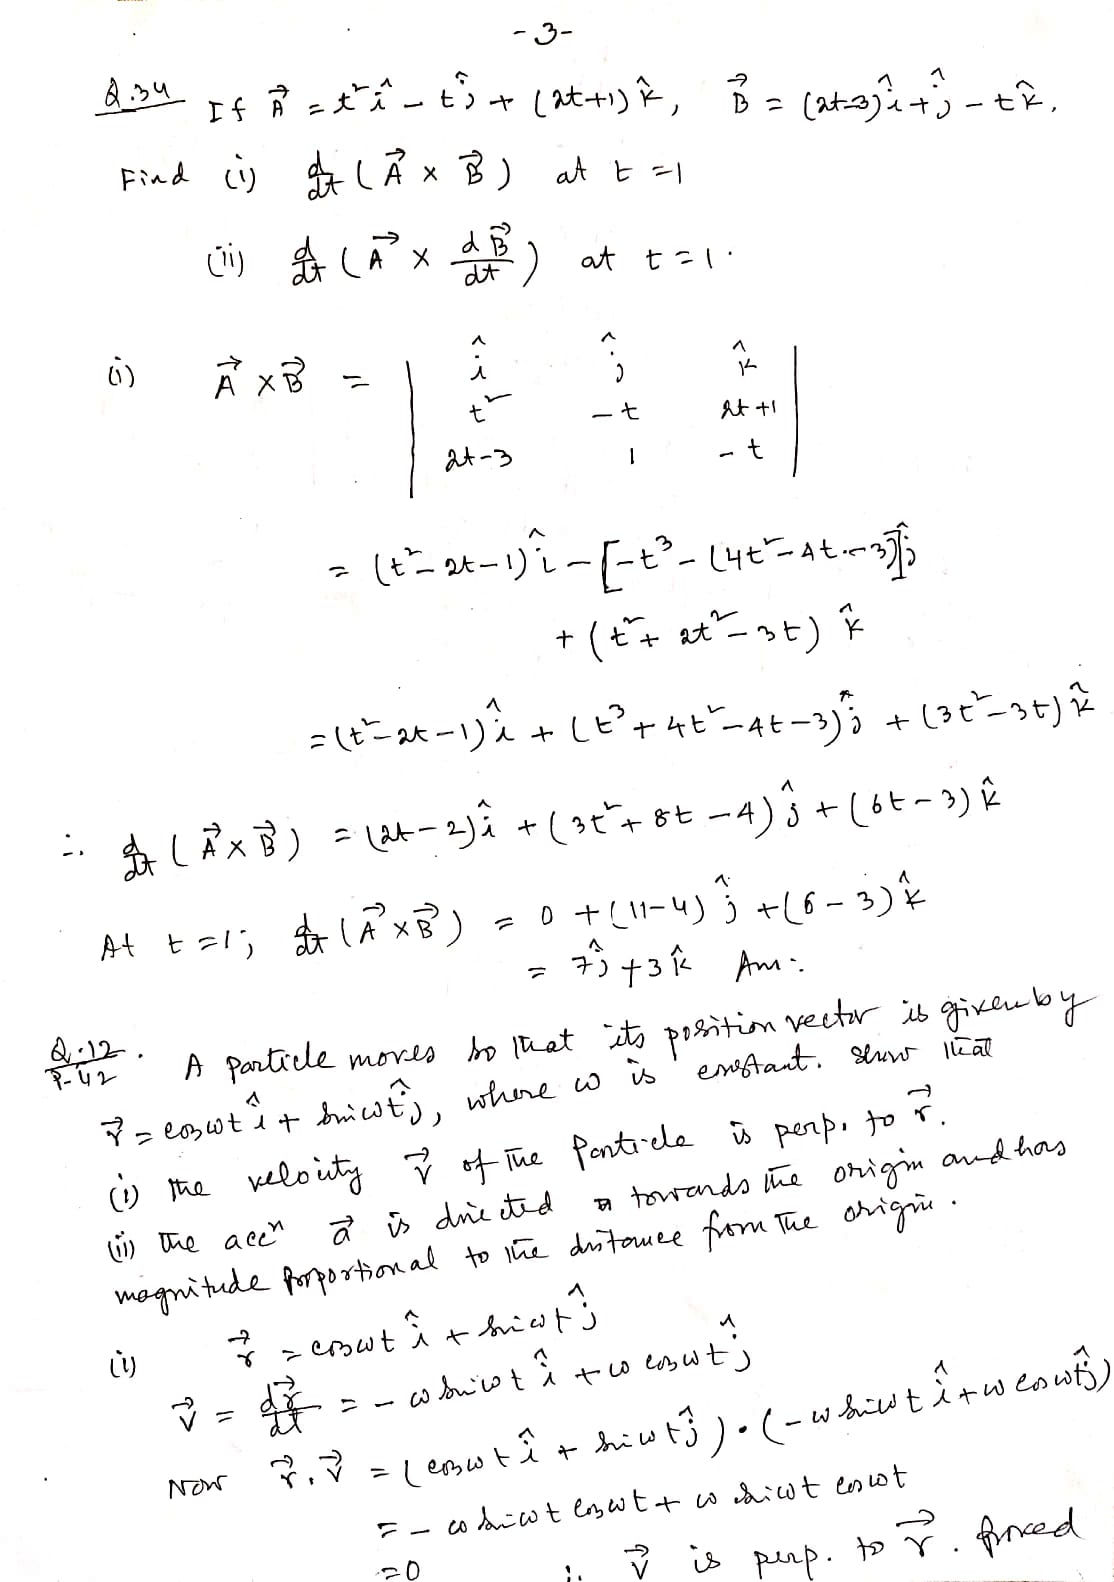 -3-
Q.34 If A⃗ = t² î - t ĵ + (2t+1) k̂, B⃗ = (2t-3) î + ĵ - t k̂.
Find (i) d/dt (A⃗ × B⃗) at t = 1
(ii) d/dt (A⃗ × dB⃗/dt) at t = 1.
(i) A⃗ × B⃗ = | î ĵ k̂
t² -t 2t+1
2t-3 1 -t |
= (t² - 2t - 1) î - [-t³ - (4t² - 4t - 3)] ĵ
+ (t² + 2t² - 3t) k̂
= (t² - 2t - 1) î + (t³ + 4t² - 4t - 3) ĵ + (3t² - 3t) k̂
∴ d/dt (A⃗ × B⃗) = (2t - 2) î + (3t² + 8t - 4) ĵ + (6t - 3) k̂
At t = 1; d/dt (A⃗ × B⃗) = 0 + (11-4) ĵ + (6 - 3) k̂
= 7ĵ + 3k̂ Ans:
Q.12 P-42. A particle moves so that its position vector is given by
r⃗ = cosωt î + sinωt ĵ, where ω is constant. Show that
(i) the velocity v⃗ of the Particle is perp. to r⃗.
(ii) The accⁿ a⃗ is directed towards the origin and has
magnitude proportional to the distance from the origin.
(i) r⃗ = cosωt î + sinωt ĵ
v⃗ = dr⃗/dt = - ω sinωt î + ω cosωt ĵ
Now r⃗.v⃗ = (cosωt î + sinωt ĵ) • (-ω sinωt î + ω cosωt ĵ)
= - ω sinωt cosωt + ω sinωt cosωt
= 0 ∴ v⃗ is perp. to r⃗. proved